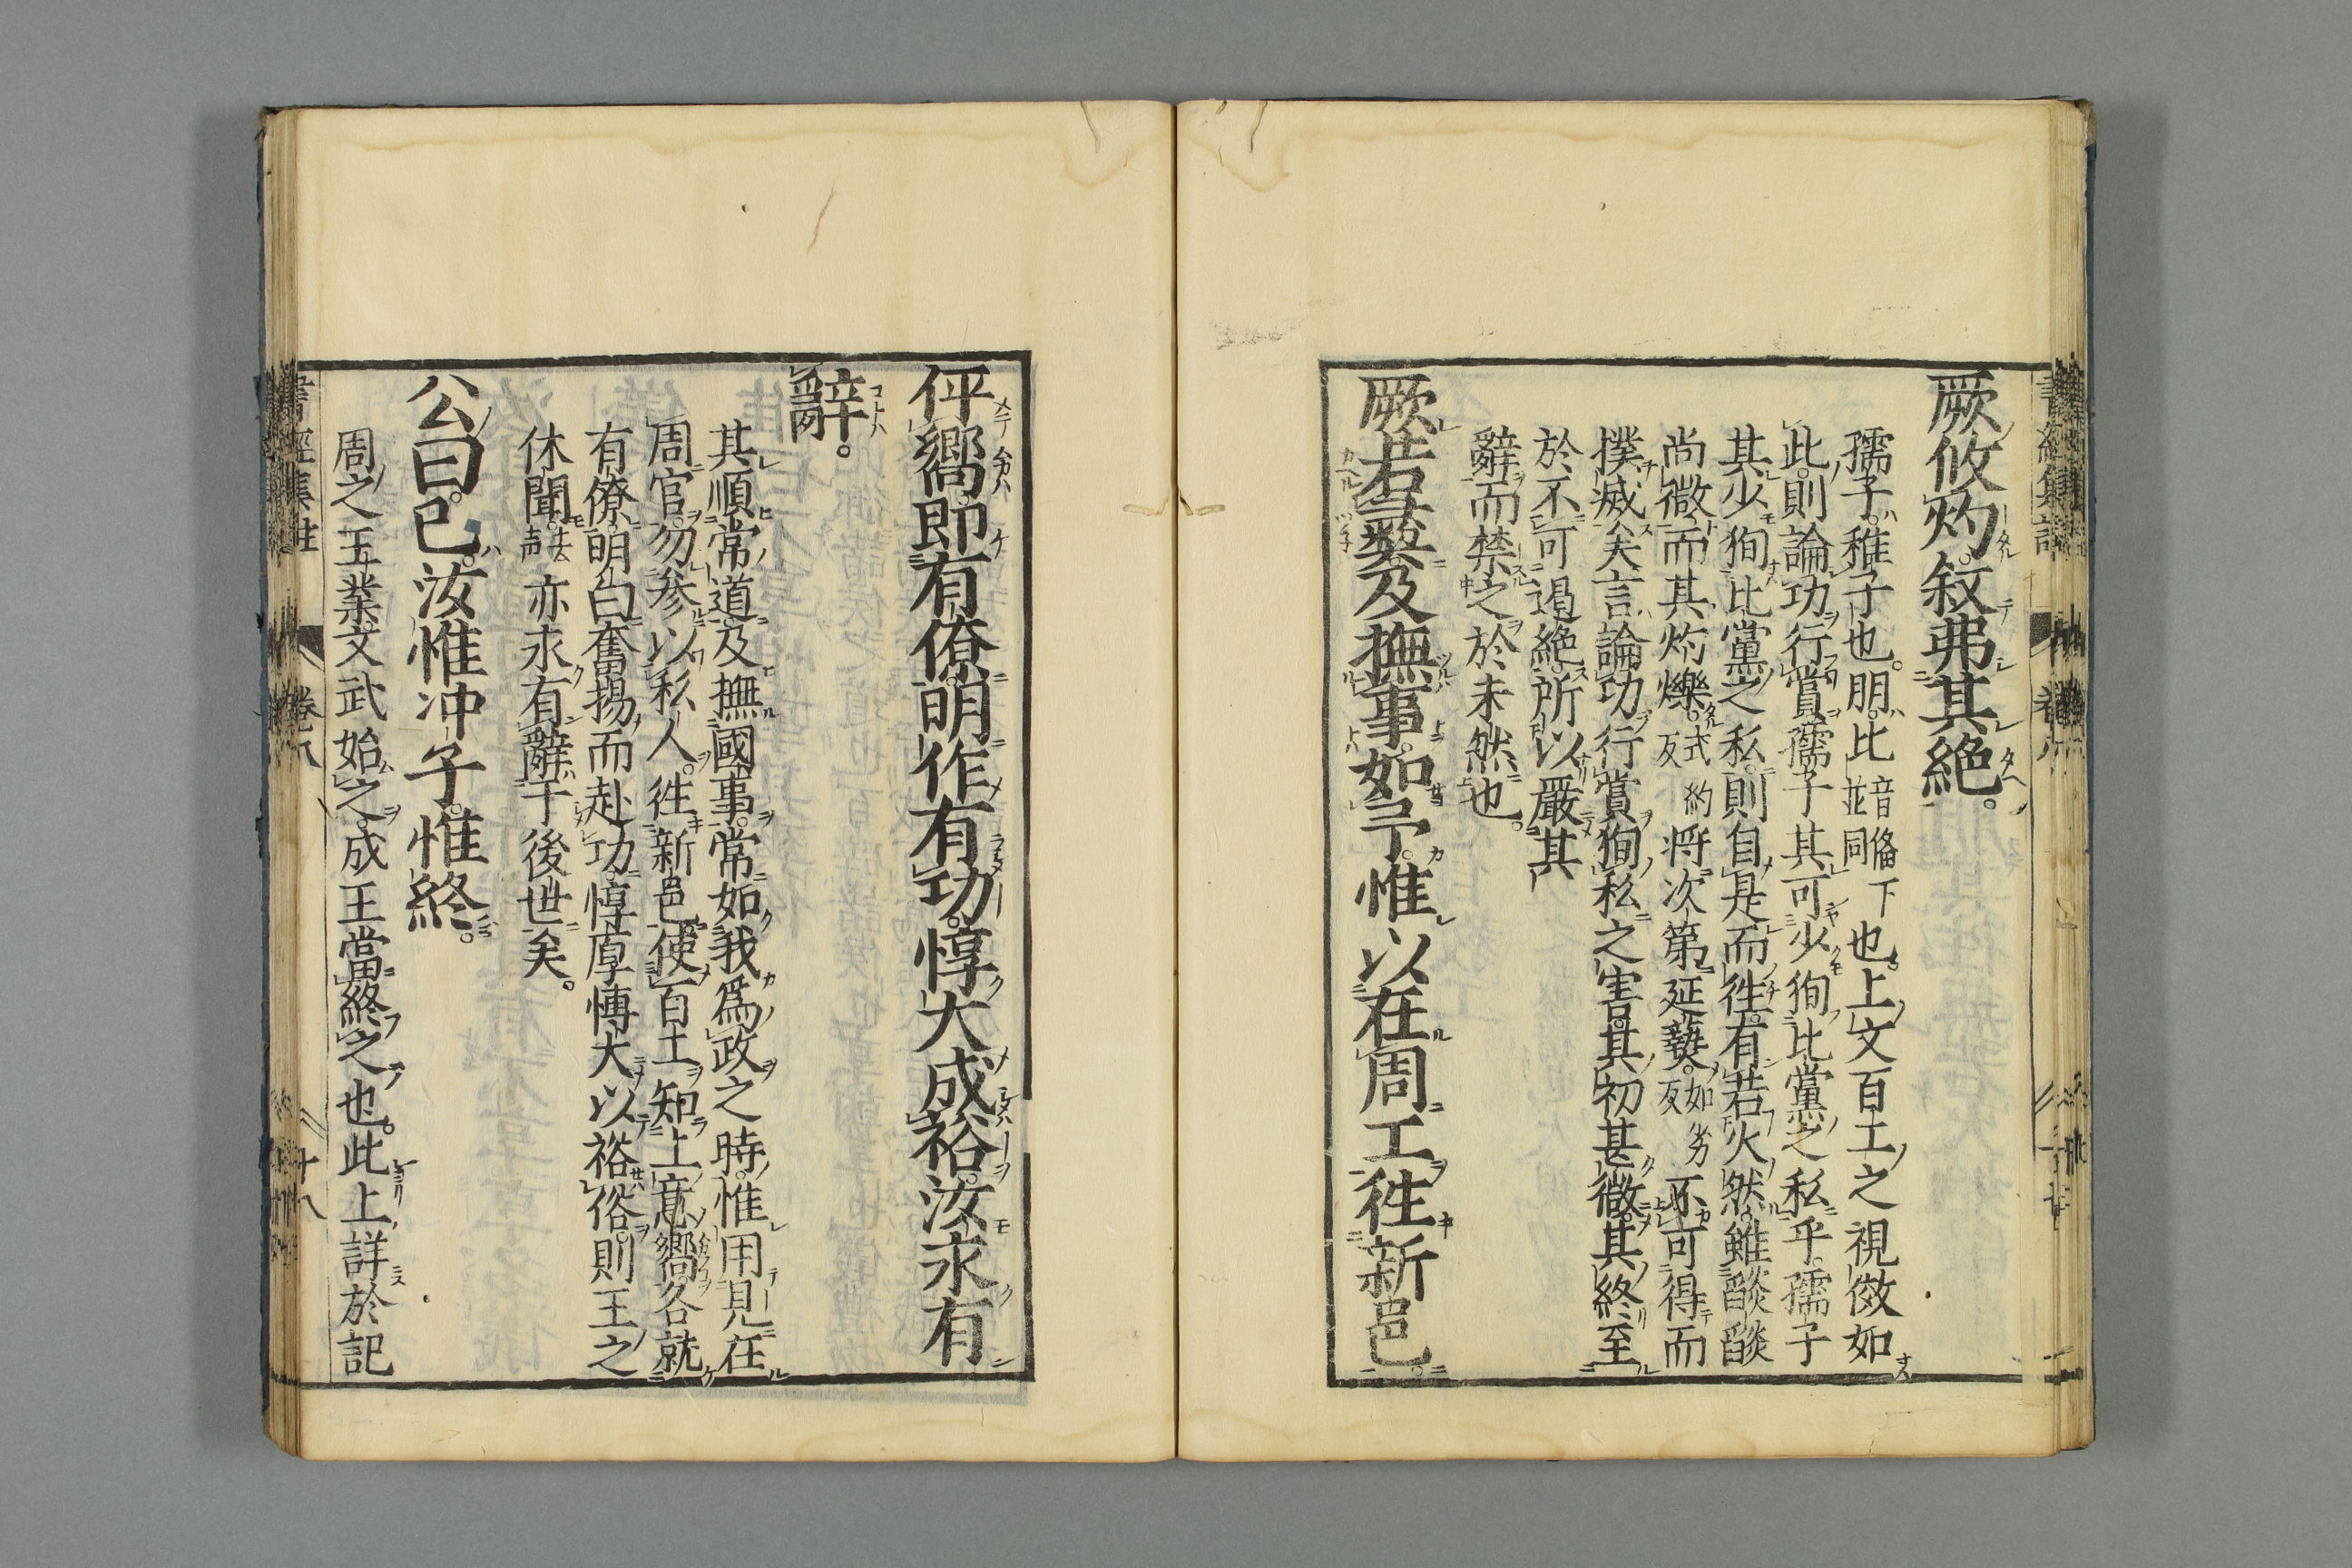 厥攸灼。敍弗其絶。
孺子。稚子也。朋。比音偹下並同也。上文百工之視傚如
此。則論功行賞。孺子其可少狥比黨之私乎。孺子
其少狥比黨之私。則自是而徃。有若火然。雖燄燄
尚微。而其灼爍。式約反將次第延爇。如劣反不可得而
撲滅矣。言論功行賞。狥私之害。其初甚微。其終至
於不可遏絶。所以嚴其
辭而禁之於未然也。
厥若彛及撫事。如予。惟以在周工徃新邑。
伻嚮即有僚。明作有功。惇大成裕。汝永有
辭。
其順常道。及撫國事。常如我爲政之時。惟用見在
周官。勿參以私人。徃新邑。使百工知上意嚮。各就
有僚。明白奮揚而赴功。惇厚慱大以裕俗。則王之
休聞。去声亦永有辭于後世矣。
公曰。已。汝惟冲子。惟終。
周之王業。文武始之。成王當終之也。此上詳於記
書經集註 卷八 十八